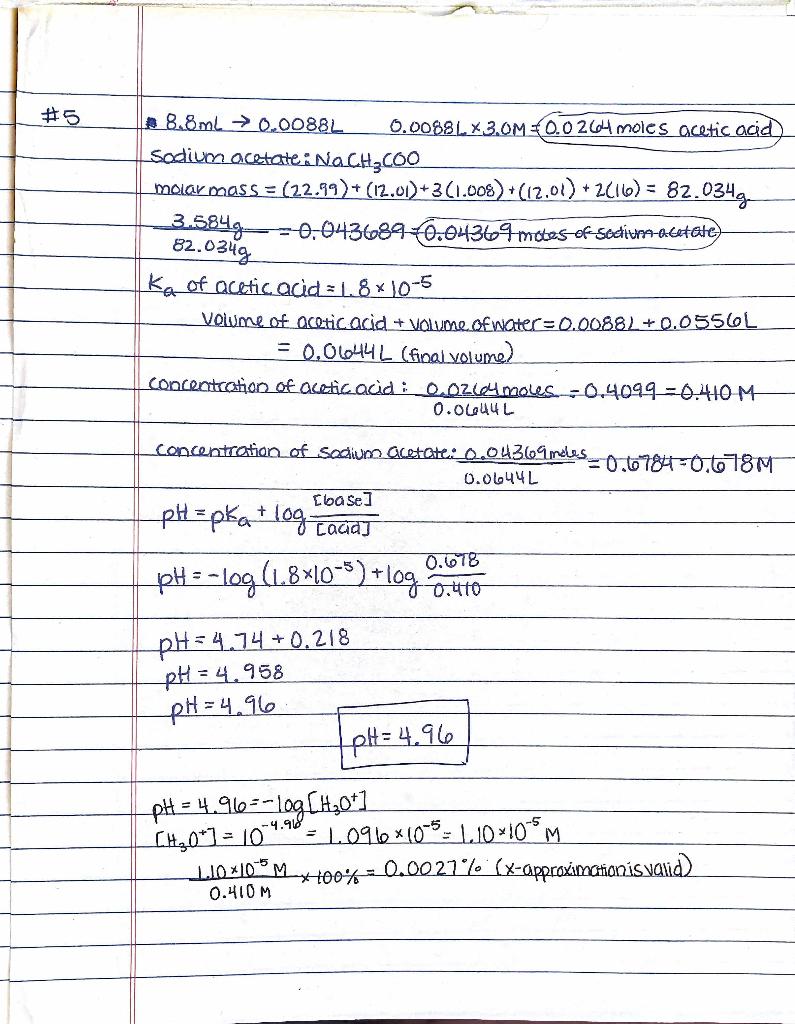 #5
8.8mL → 0.0088L 0.0088L × 3.0M = 0.0264 moles acetic acid
Sodium acetate: NaCH₃COO
molar mass = (22.99) + (12.01) + 3(1.008) + (12.01) + 2(16) = 82.034g
3.584g / 82.034g = 0.043689 = 0.04369 moles of sodium acetate
Ka of acetic acid = 1.8 × 10⁻⁵
Volume of acetic acid + volume of water = 0.0088L + 0.0556L
= 0.0644L (final volume)
concentration of acetic acid: 0.0264 moles / 0.0644L = 0.4099 = 0.410 M
concentration of sodium acetate: 0.04369 moles / 0.0644L = 0.6784 = 0.678M
pH = pKa + log [base] / [acid]
pH = -log (1.8×10⁻⁵) + log 0.678 / 0.410
pH = 4.74 + 0.218
pH = 4.958
pH = 4.96
pH = 4.96
pH = 4.96 = -log [H₃O⁺]
[H₃O⁺] = 10⁻⁴·⁹⁶ = 1.096 × 10⁻⁵ = 1.10 × 10⁻⁵ M
1.10 × 10⁻⁵ M / 0.410 M × 100% = 0.0027% (x-approximation is valid)